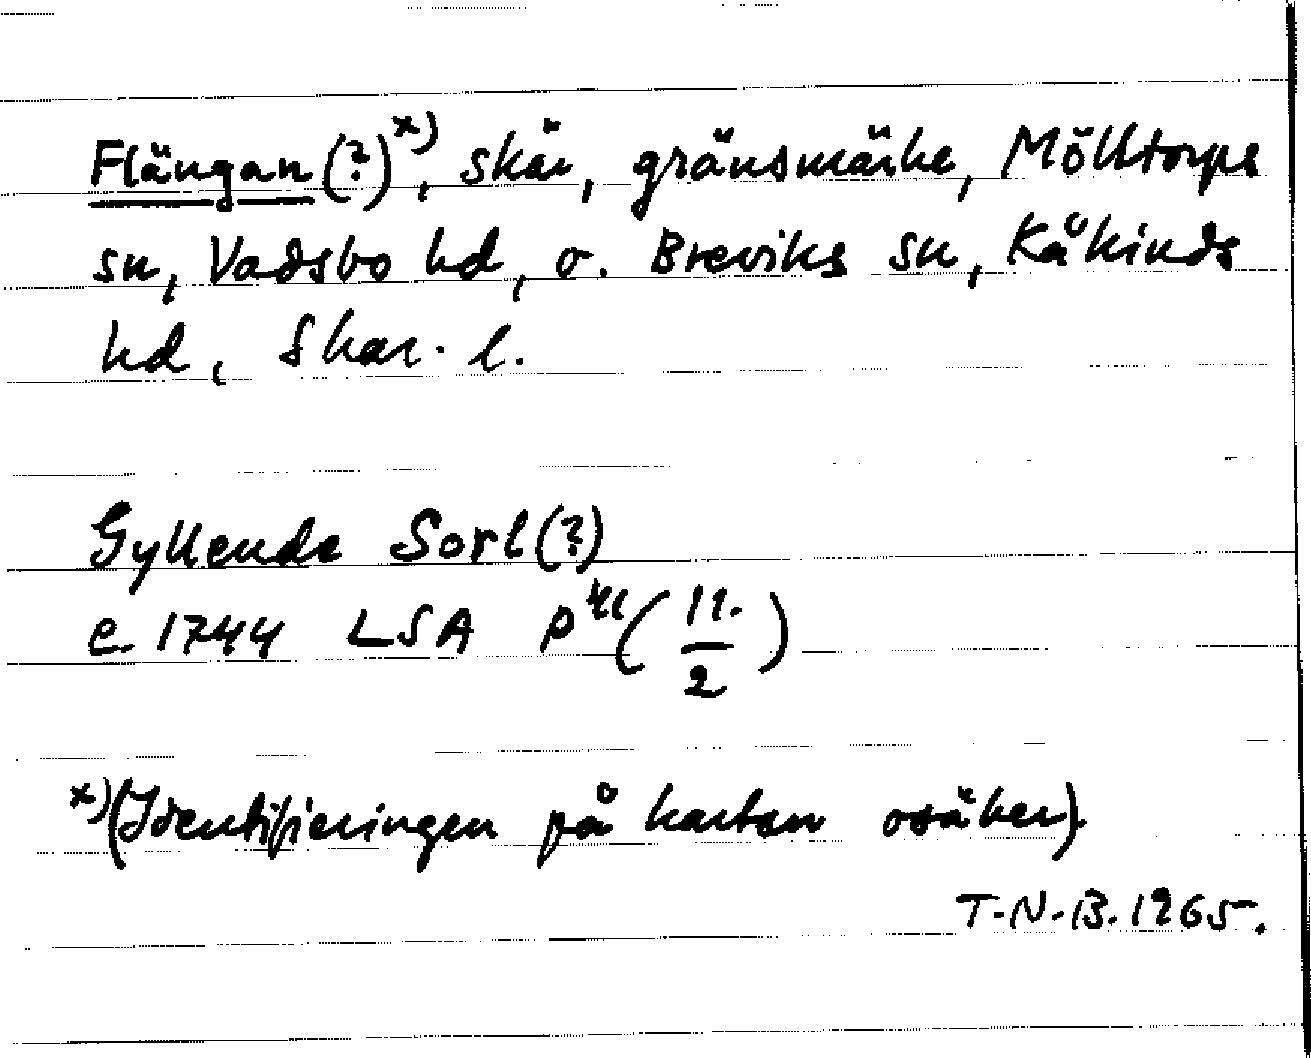 Flängan (?) x), skär, gränsmärke, Mölltorps
sn, Vadsbo hd, o. Breviks sn, Kåkinds
hd, Skar. l.
Gyllende Sorl (?)
c. 1744 LSA P (11. / 2)
x) (Identifieringen på kartan osäker)
T.N.B. 1965.